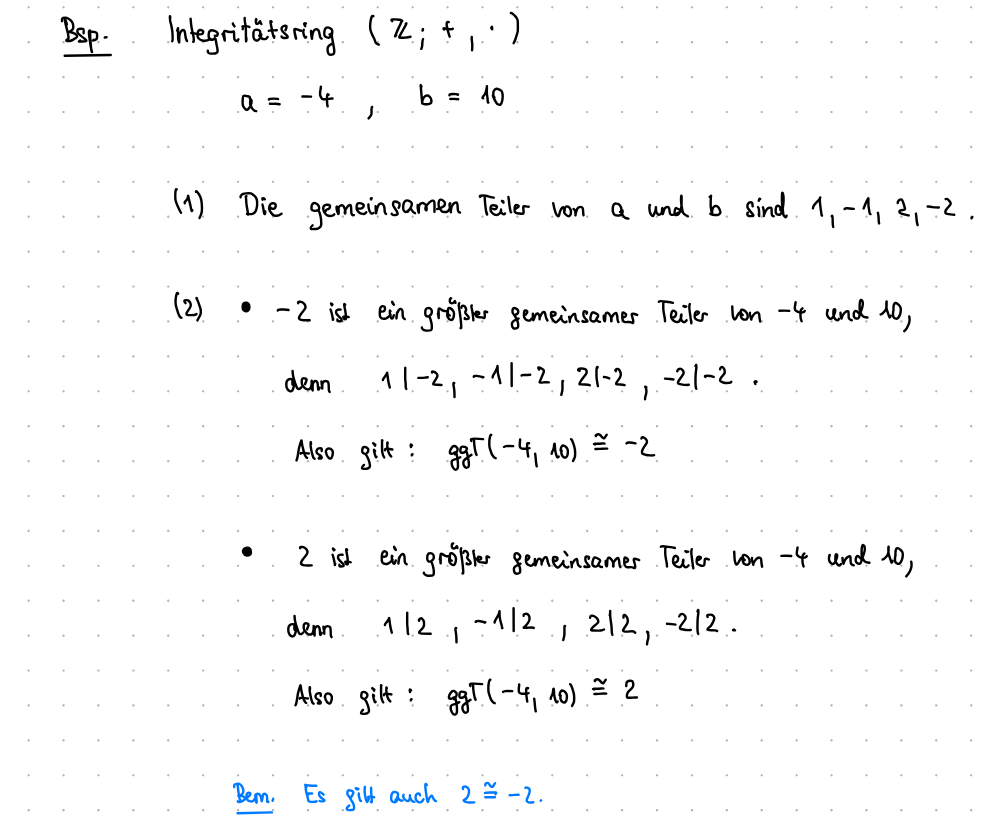 Bsp. Integritätsring (ℤ; +, ·)
a = -4 , b = 10
(1) Die gemeinsamen Teiler von a und b sind 1, -1, 2, -2.
(2) • -2 ist ein größter gemeinsamer Teiler von -4 und 10,
denn 1|-2, -1|-2, 2|-2, -2|-2.
Also gilt: ggT(-4, 10) ≅ -2
• 2 ist ein größter gemeinsamer Teiler von -4 und 10,
denn 1|2, -1|2, 2|2, -2|2.
Also gilt: ggT(-4, 10) ≅ 2
Bem. Es gilt auch 2 ≅ -2.